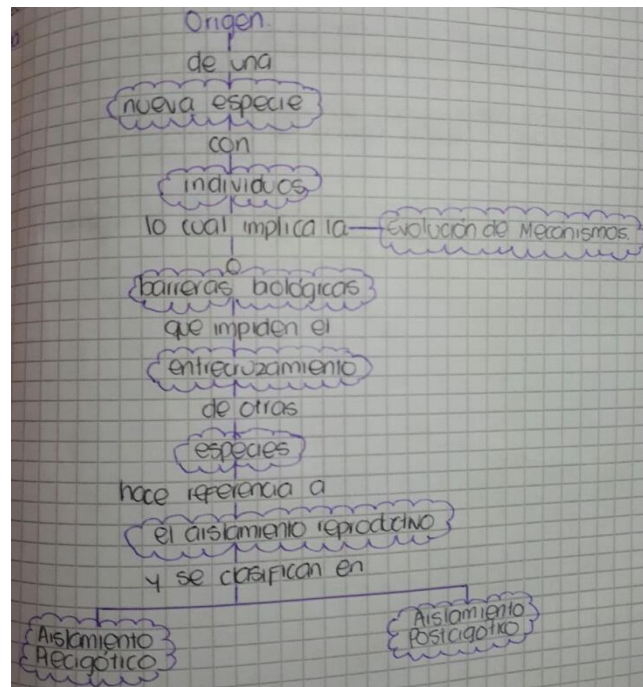 Origen
de una
nueva especie
con
individuos
lo cual implica la Evolución de Mecanismos.
o
barreras biológicas
que impiden el
entrecruzamiento
de otras
especies
hace referencia a
el aislamiento reproductivo
y se clasifican en
Aislamiento
Precigótico
Aislamiento
Postcigótico